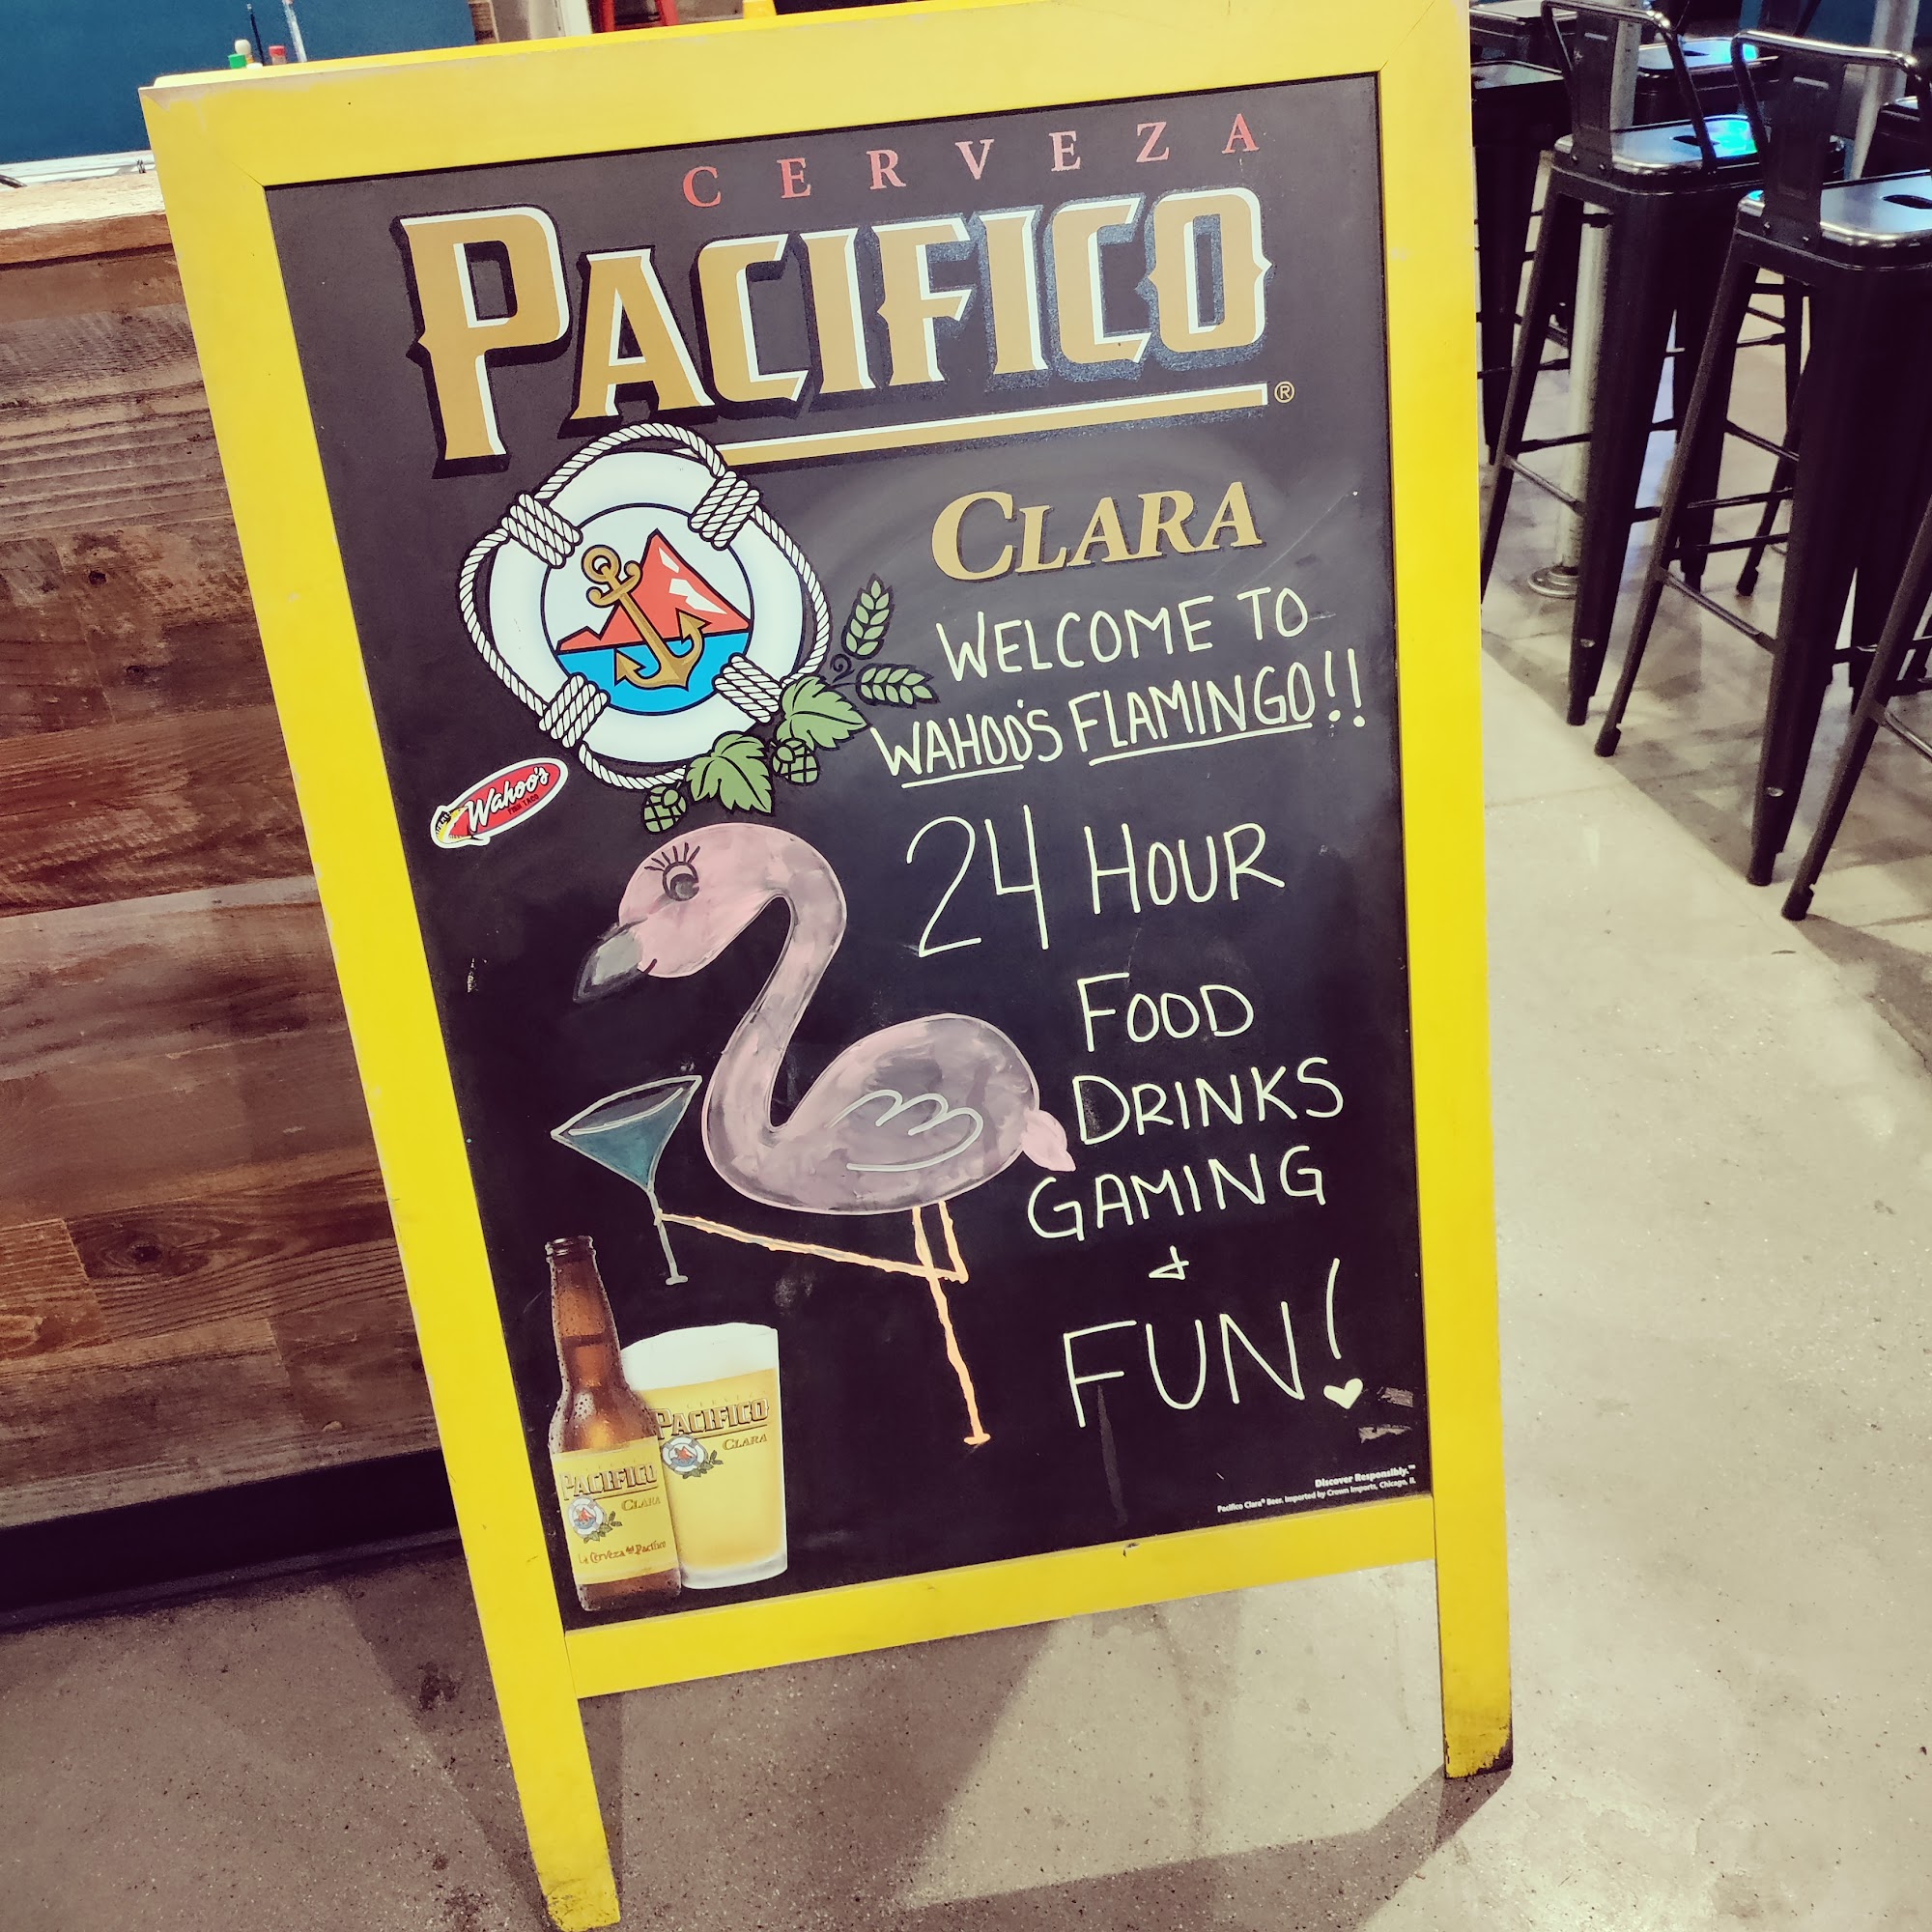 CERVEZA
PACIFICO
®
CLARA
WELCOME TO
WAHOO'S FLAMINGO!!
Wahoo's
FISH TACO
24 HOUR
FOOD
DRINKS
GAMING
&
FUN!
PACIFICO
CLARA
PACIFICO
CLARA
La Cerveza del Pacífico
Discover Responsibly.™
Pacifico Clara® Beer. Imported by Crown Imports, Chicago, IL